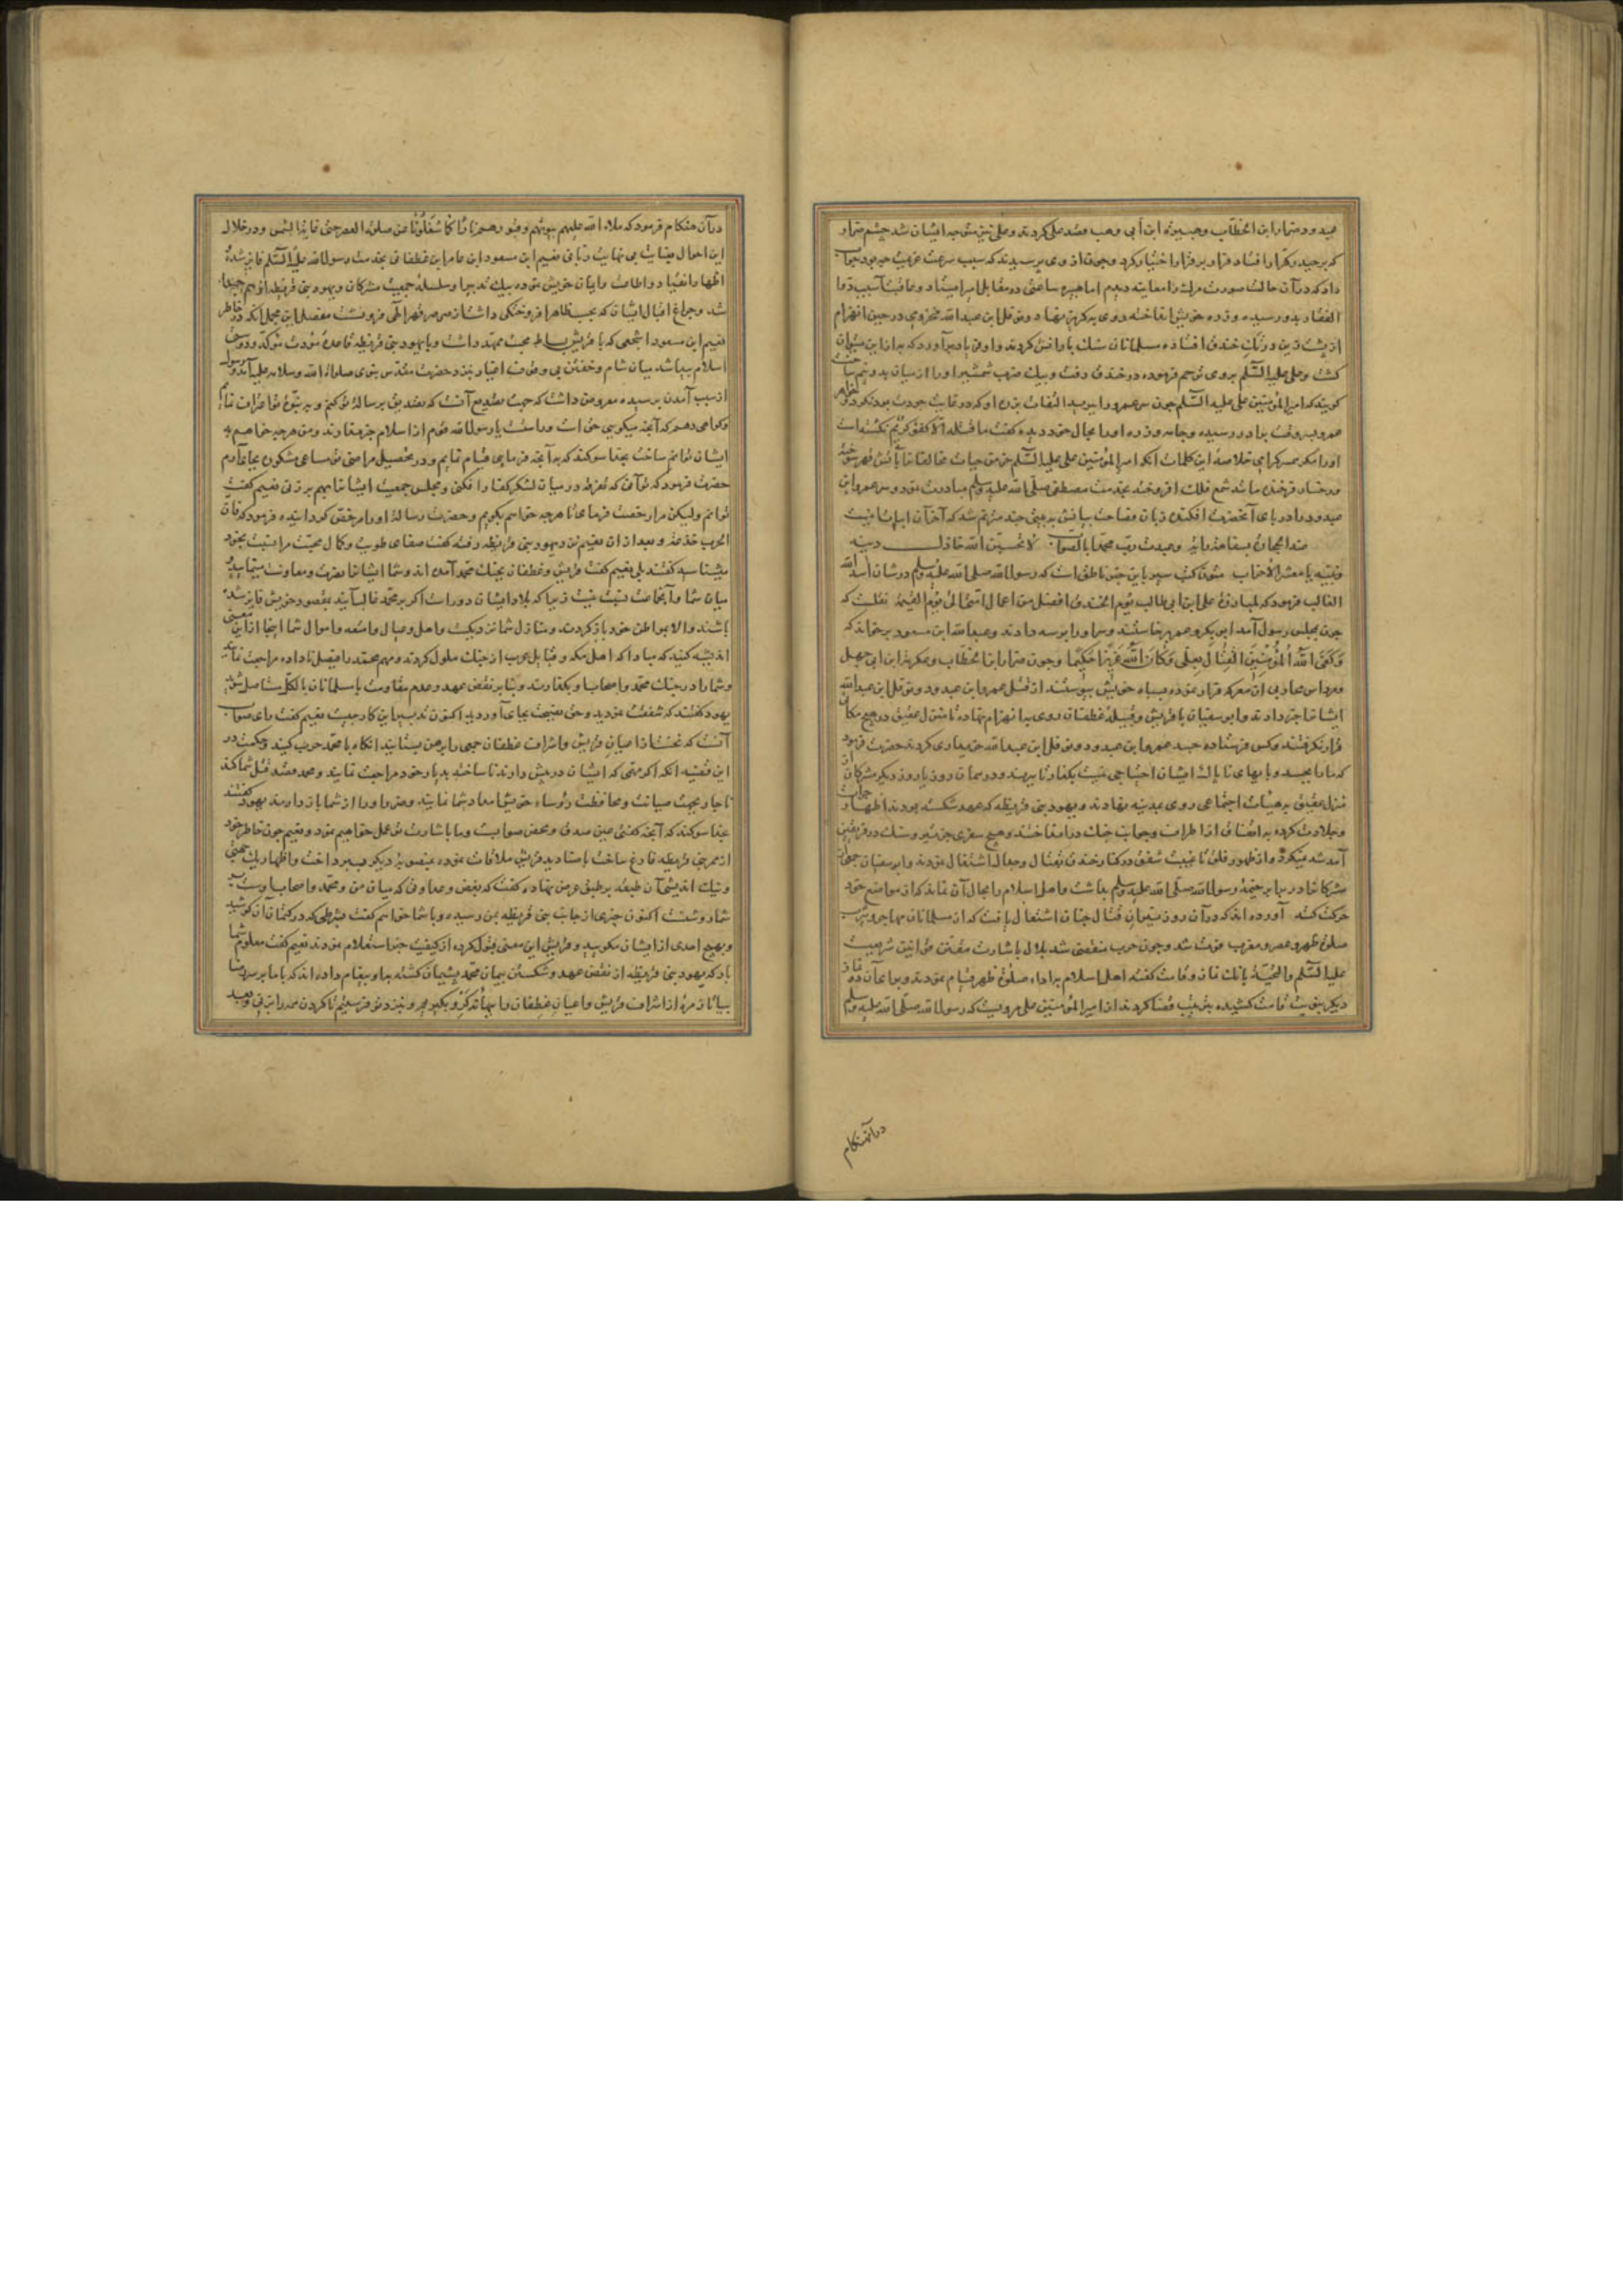 عبدود ضرار ابن الخطاب وهبیره ابن أبی وهب قصد علی کردند وعلی نیز متوجه ایشان شد چشم ضرار
که بر حیدر کرار افتاد فرار بر قرار اختیار کرد وچون از وی پرسیدند که سبب سرعت هزیمت چه بود جواب
داد که در آن حالت صورت مرک را معاینه دیدم اما هبیره ساعتی در مقابل امیر ایستاد وعاقبت آسیب ذوا
الفقار بدو رسیده وزره خویش انداخته روی به کریز نهاد ونوفل ابن عبدالله مخزومی در حین انهزام
از پشت زین در تک خندق افتاده مسلمانان سنک باران کردند واو فریاد برآورد که بدتر از این میتوان
کشت وعلی علیه السلم بر وی ترحم فرموده در خندق رفت وبیک ضرب شمشیر او را از میان بدو نیم ساخت
کویند که امیر المؤمنین علی علیه السلم چون سر عمرو را برید التفات بزره او که در غایت جودت بود نکرد وخواهر
عمرو بر وقت برادر رسیده وجامه وزره او را بحال خود دیده کفت ما قتله الا کفو کریم نکشته است
او را مکر همسر کرامی خلاصه این کلمات آنکه امیر المؤمنین علی علیه السلم خرمن حیات مخالفان را بآتش قهر سوخته
ورخسار فرخنده مانند شمع فلک افروخته بخدمت مصطفی صلی الله علیه وسلم مبادرت نمود وسر عمرو ابن
عبدود را در پای آنحضرت افکنده زبان فصاحت بیانش به بیتی چند مترنم شد که آخر آن ابیات اینست
عبد الحجارة بسفاهة رأیه وعبدت رب محمد بالصواب لا تحسبن الله خاذل دینه
ونبیه یا معشر الاحزاب متون کتب سیر باین خبر ناطق است که رسول الله صلی الله علیه وسلم در شان اسد الله
الغالب فرمود که لمبارزة علی ابن ابی طالب یوم الخندق افضل من اعمال امتی الی یوم القیمة نقلست که
چون بمجلس رسول آمد ابو بکر وعمر برخاستند وسر او را بوسه دادند وعبدالله ابن مسعود برخواند که
وَکَفَی اللّهُ المُؤمِنینَ القِتالَ بِعلی وَکانَ اللّهُ عَزیزًا حَکیمًا وچون ضرار ابن الخطاب وعکرمه ابن ابی جهل
ومرداس محاربی از معرکه فرار نموده بسپاه خویش پیوستند از قتل عمرو ابن عبدود ونوفل ابن عبدالله
ایشانرا خبر دادند وابو سفیان با قریش وقبیله غطفان روی بانهزام نهاده تا منزل عقیق در هیچ مکان
قرار نکرفتند وکس فرستاده جسد عمرو ابن عبدود ونوفل ابن عبدالله خریداری کردند حضرت فرمود
که ما را بجسد وبهای ناپاک ایشان احتیاجی نیست بکذار تا ببرند ودر همان روز یا روز دیکر مشرکان از
منزل عقیق به هیئات اجتماعی روی بمدینه نهادند ویهود بنی قریظه که عهد شکسته بودند اظهار جرأت
وجلادت کرده به اتفاق از اطراف وجوانب جنک در انداختند وهیچ سفری جز تیر وسنک در فریقین
آمد شد نمیکرد واز ظهور فلق تا غیبت شفق در کنار خندق بقتال وجدال اشتغال نمودند وابو سفیان جمعی از
مشرکان را در برابر خیمه رسول الله صلی الله علیه وسلم بداشت واهل اسلام را مجال آن نماند که از مواضع خود
حرکت کنند آورده اند که در آن روز نیران قتال چنان اشتعال یافت که از مسلمانان مهاجر وانصار
صلوة ظهر وعصر ومغرب فوت شد وچون حرب منقضی شد بلال باشارت مقنن قوانین شریعت
علیه السلم والتحیة بانک نماز وقامت کفته اهل اسلام به اداء صلوة ظهر قیام نمودند وبرای آن دو نماز
دیکر بنوبت قامت کشیده بترتیب قضا کردند از امیر المؤمنین علی مرویست که رسول الله صلی الله علیه وسلم
درآنهنکام
در آن هنکام فرمود که ملاء الله علیهم بیوتهم وقبورهم نارًا کما شغلونا عن صلوة العصر حتی غابت الشمس ودر خلال
این احوال بعنایت بی نهایت ربانی نعیم ابن مسعود ابن عامر ابن غطفانی بخدمت رسول الله علیه السلم فایز شده
اظهار انقیاد واطاعت وایمان خویش نموده بیک تدبیر او سلسله جمعیت مشرکان ویهود بنی قریظه از هم جدا
شد وچراغ اقبال ایشان که بحسب ظاهر افروختکی داشت از صرصر قهر الهی فرو نشست مفصل این مجمل آنکه در خاطر
نعیم ابن مسعود اشجعی که با قریش بساط محبت ممهد داشت وبا یهود بنی قریظه قاعده مودت موکد دوستی
اسلام پیدا شد میان شام وخفتن بی وقوف اغیار بنزد حضرت مقدس نبوی صلوات الله وسلامه علیه آمد ورسول
از سبب آمدن پرسیده معروض داشت که جهت تصدیع آنست که تصدیق برسالت تو کنم وبر نبوت تو اعتراف نمایم
وکواهی دهم که آنچه میکویی حق است وراست یا رسول الله قوم از اسلام خبر ندارند ومن هرچه خواهم به
ایشان توانم ساخت بخدا سوکند که به آنچه فرمایی قیام نمایم ودر تحصیل مراضی تو مساعی مشکوره بجای آرم
حضرت فرمود که توانی که تفرقه در میان لشکر کفار افکنی ومجلس جمعیت ایشانرا بهم برزنی نعیم کفت
توانم ولیکن مرا رخصت فرمای تا هرچه خواهم بکویم وحضرت رسالت او را مرخص کردانیده فرمود که فان
الحرب خدعة وبعد از آن نعیم نزد یهود بنی قریظه رفته کفت صفای طویت وکمال محبت مرا نسبت بخود
میشناسید کفتند بلی نعیم کفت قریش وغطفان بجنک محمد آمده اند وشما ایشانرا نصرت ومعاونت مینمایید
میان شما وآنجماعت نسبت نیست زیرا که بلاد ایشان دور است اکر بر محمد غالب آیند بمقصود خویش فایز شده
باشند والا بمواطن خود باز کردند ومنازل شما نزدیکست واهل وعیال وامتعه واموال شما اینجا از این معنی
اندیشه کنید که مبادا که اهل مکه وقبایل عرب از جنک ملول کردند ومهم محمد را فیصل نا داده مراجعت نمایند
وشما را در جنک محمد واصحاب او بکذارند وبنابر نقض عهد وعدم مقاومت با مسلمانان بالکل مستاصل شوید
یهود کفتند که شفقت نمودید وحق نصیحت بجای آوردید اکنون تدبیر این کار چیست نعیم کفت رای صواب
آنست که نخست از اعیان قریش واشراف غطفان جمعی را برهن بستانید انکاه با محمد حرب کنید وحکمت در
این قضیه آنکه اکر مهمی که ایشان در پیش دارند نا ساخته بدیار خود مراجعت نمایند ومحمد قصد قتل شما کند
ناچار بجهت صیانت ومحافظت رؤساء خویش امداد شما نمایند وضرر او را از شما باز دارند یهود کفتند
بخدا سوکند که آنچه کفتی عین صدق ومحض صوابست وما باشارت تو عمل خواهیم نمود ونعیم چون خاطر خود
از ممر بنی قریظه فارغ ساخت با صنادید قریش ملاقات نموده بمنصوبه دیکر پرداخت واظهار یک جهتی
ونیک اندیشی آن طبقه بر طبق عرض نهاده کفت که بغض وعداوتی که میان من ومحمد واصحاب اوست بر
شما روشنست اکنون چیزی از جانب بنی قریظه بمن رسیده وبا شما خواهم کفت بشرطی که در کتمان آن کوشید
وبهیچ احدی از ایشان مکویید وقریش این معنی قبول کرده از کیفیت خبر استعلام نمودند نعیم کفت معلوم شما
باد که یهود بنی قریظه از نقض عهد وشکستن پیمان محمد پشیمان کشته بدو پیغام داده اند که با ما بر سر رضا